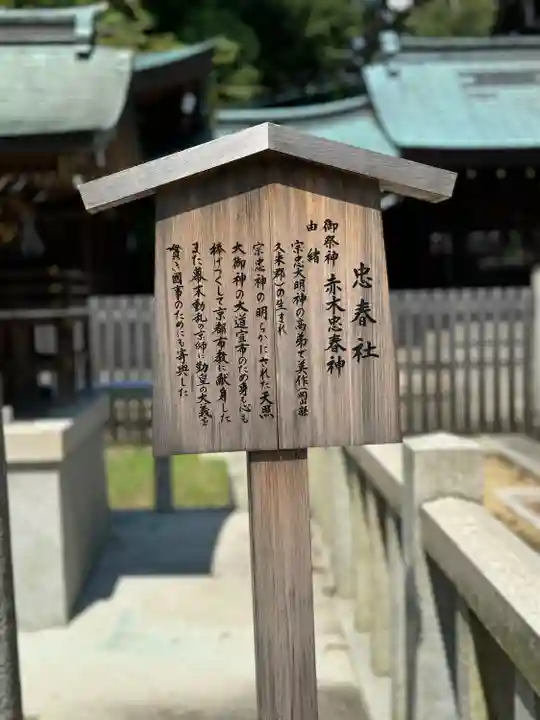 忠春社
御祭神 赤木忠春神
由緒
宗忠大明神の高弟で美作(岡山縣
久米郡)の生まれ
宗忠神の明らかにされた天照
大御神の大道宣布のため身も心も
捧げつくして京都布教に献身した
また幕末動乱の京師に勤皇の大義を
貫き國事のためにも寄與した